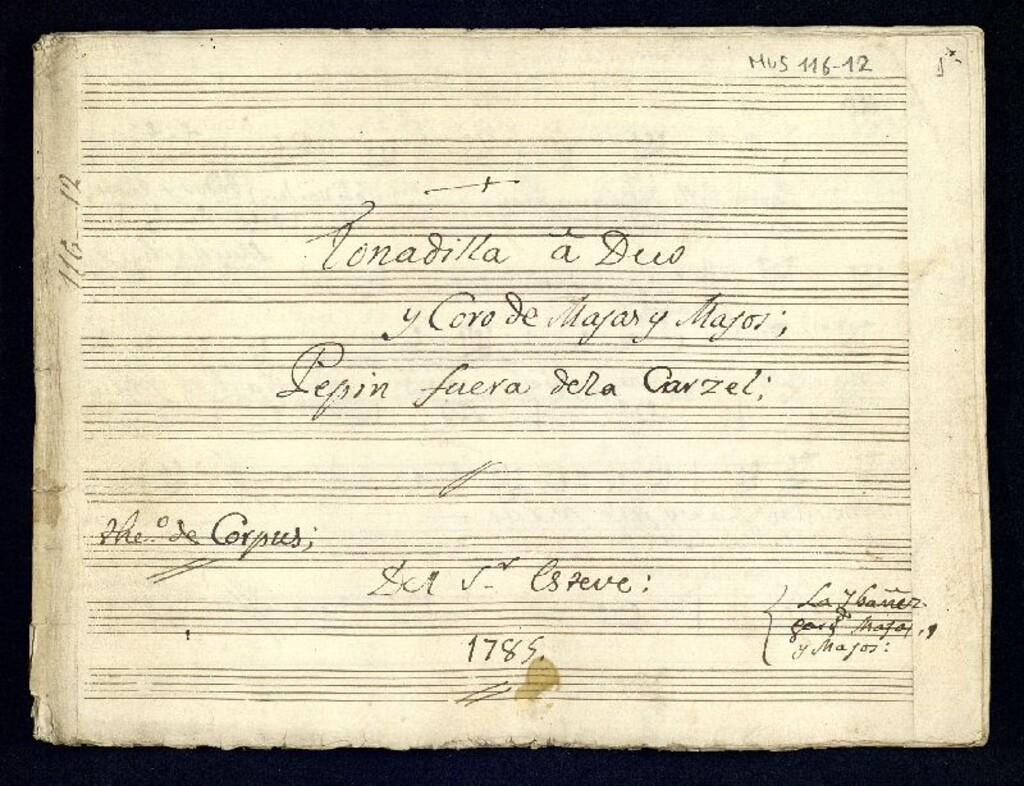 MUS 116-12
116-12
Tonadilla â Duo
y Coro de Majas y Majos;
Pepin fuera dela Carzel;
the.º de Corpus;
Del S.r Esteve:
La Ybañez
Majas,
y Majos:
1785.